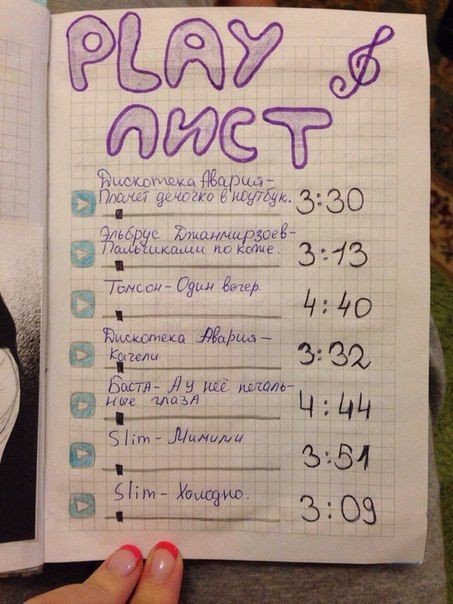 PLAY
ЛИСТ
Дискотека Авария-
Плачет девочка в ноутбук. 3:30
Эльбрус Джанмирзоев-
Пальчиками по коже. 3:13
Томсон-Один вечер. 4:40
Дискотека Авария-
Качели 3:32
Баста-А у неё печаль-
ные глаза 4:44
Slim-Мимими 3:51
Slim-Холодно. 3:09